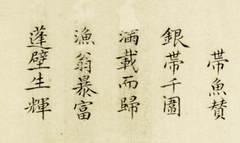 帶魚贊
銀帶千圍
滿載而歸
漁翁暴富
蓬壁生輝